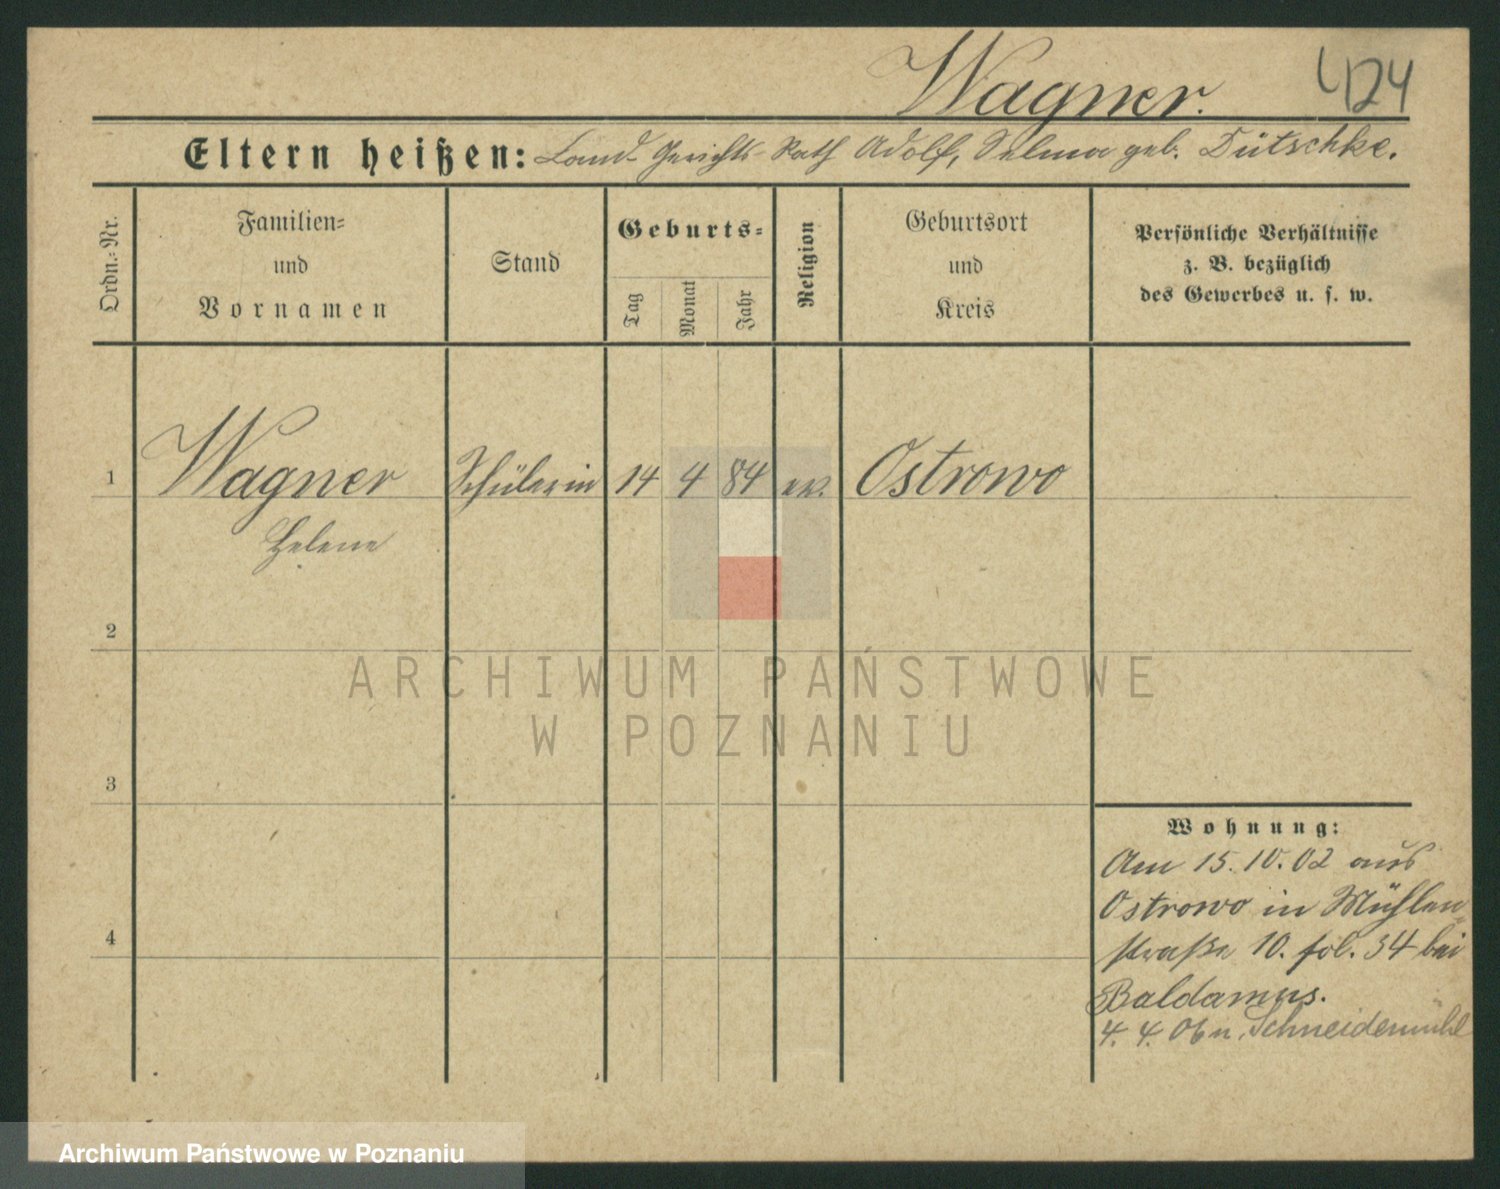 Wagner. 424
Eltern heißen: Land-Gerichts-Rath Adolf, Selma geb. Dütschke.
Ordn.-Nr.
Familien-
und
Vornamen
Stand
Geburts-
Tag
Monat
Jahr
Religion
Geburtsort
und
Kreis
Persönliche Verhältnisse
z. B. bezüglich
des Gewerbes u. s. w.
1 Wagner Schülerin 14 4 84 ev. Ostrowo
Helene
2
3
4
Wohnung:
Am 15.10.02 aus
Ostrowo in Mühlen-
straße 10. fol. 34 bei
Baldamus.
4. 4. 06 n. Schneidemühl
ARCHIWUM PAŃSTWOWE
W POZNANIU
Archiwum Państwowe w Poznaniu